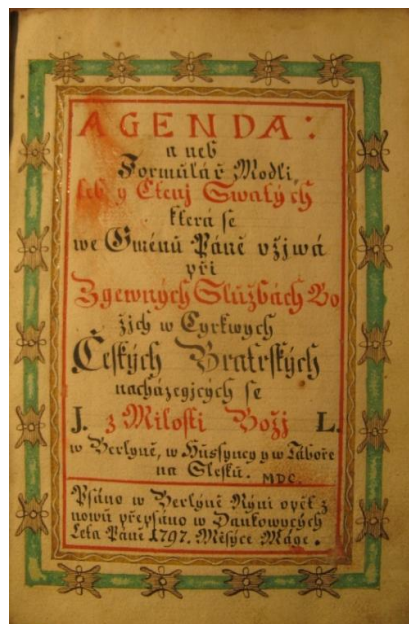 AGENDA:
a neb
Formulář Modli,
teb y Čtenj Swatých
která se
we Gménú Páně vžjwá
při
Zgewných Slúžbách Bo
žjch w Cyrkwych
Českých Bratrských
nacházegjcých se
J. z Milosti Božj L.
w Berlyně, w Hússyncy y w Táboře
na Slesků. MDC.
Psáno w Berlyně Nýni opět z
nowú přepsáno w Daukowcých
Leta Páně 1797. Měsýce Máge.